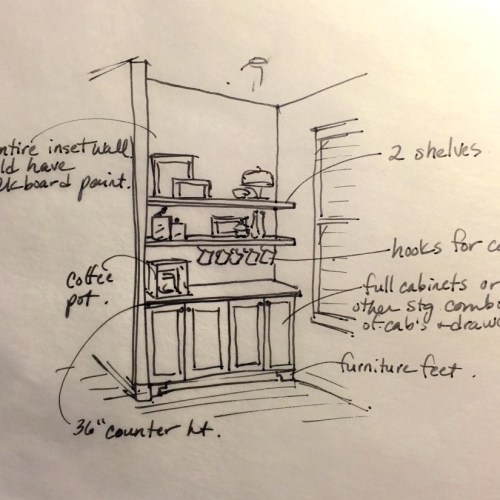 entire inset wall
ld have
lkboard paint.
2 shelves
hooks for co
coffee
pot.
full cabinets or
other stg combo
of cab's + drawe
furniture feet.
36" counter ht.